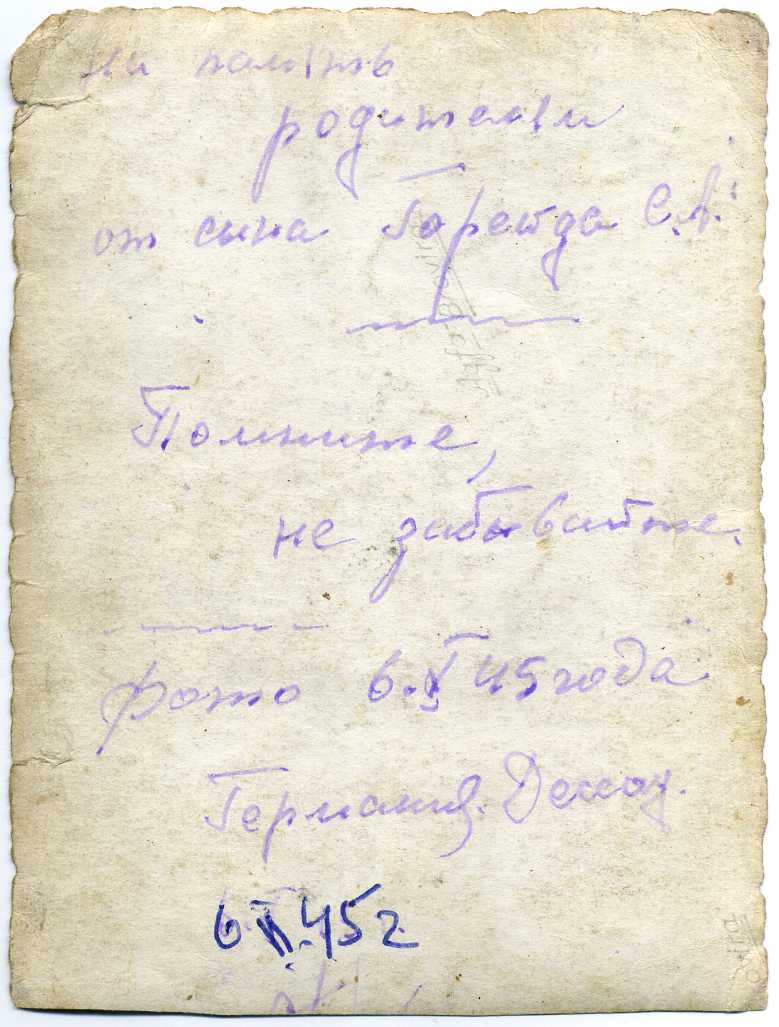 на память
родителям
от сына С.А.
Помните,
не забывайте.
фото 6.X 45 года
Германия.
45 г